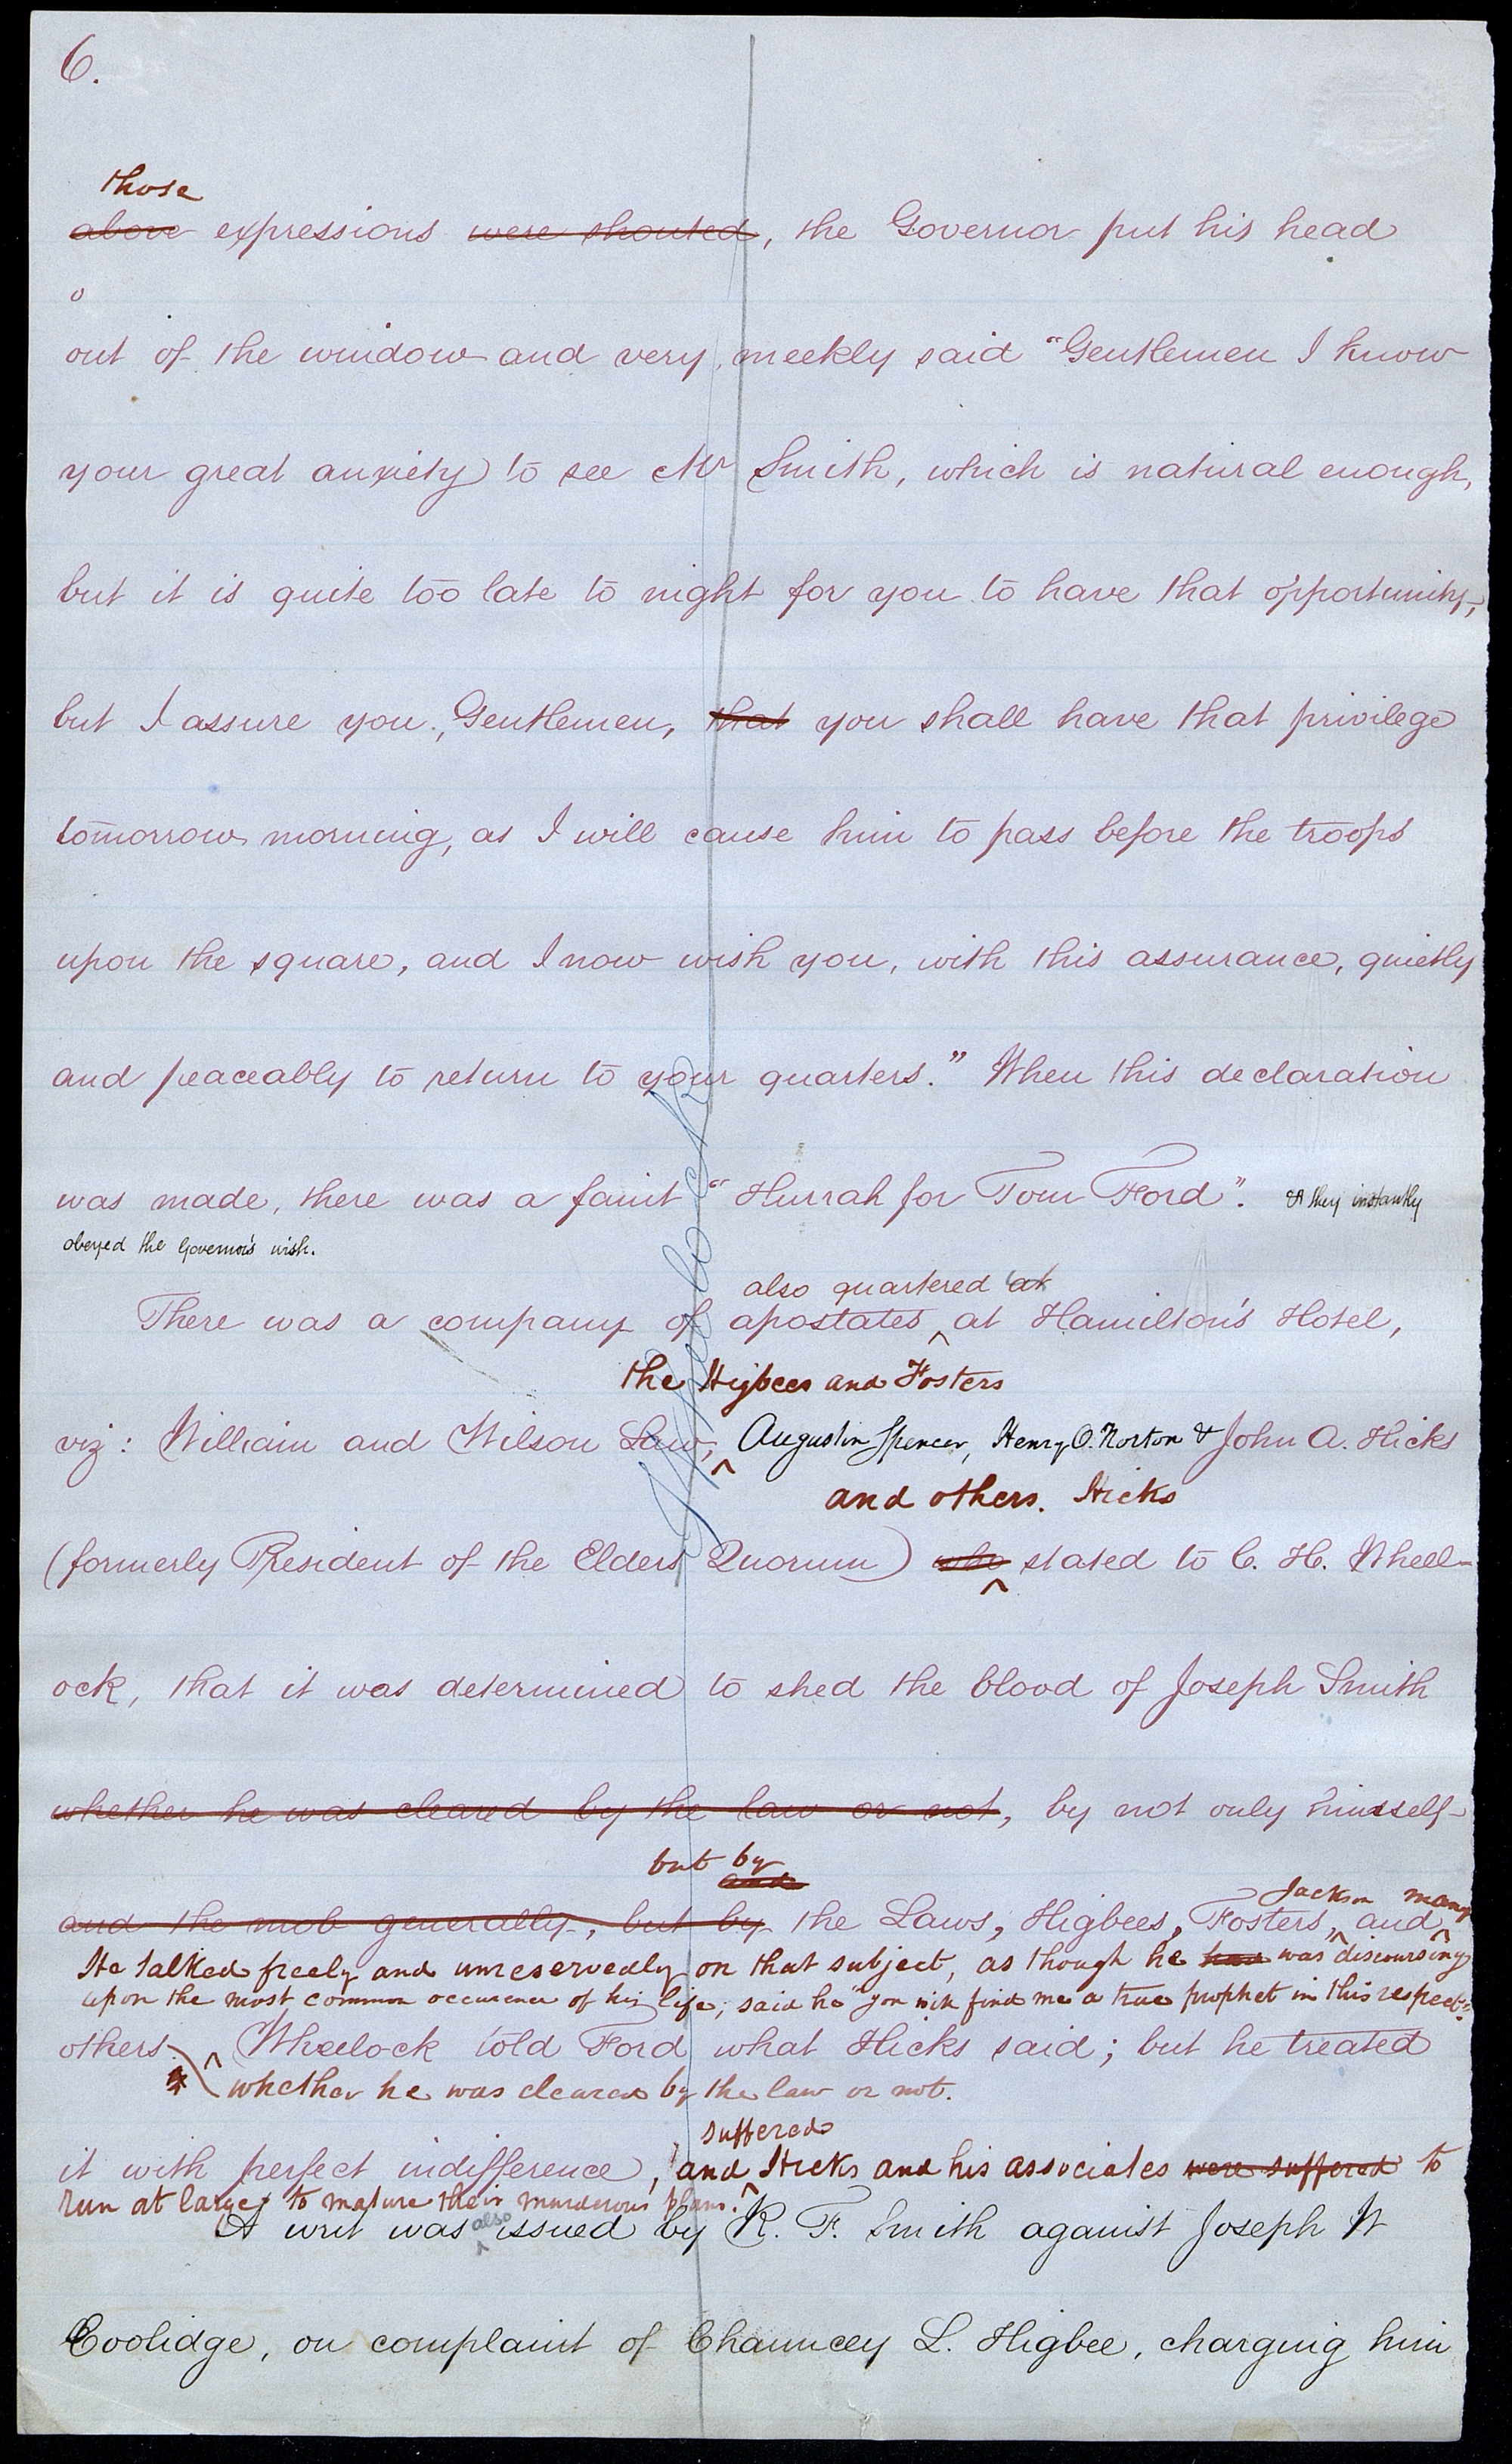 6.
those
above expressions were shouted, the Governor put his head
o
out of the window and very meekly said "Gentlemen I know
your great anxiety to see Mr Smith, which is natural enough,
but it is quite too late to night for you to have that opportunity,
but I assure you, Gentlemen, that you shall have that privilege
tomorrow morning, as I will cause him to pass before the troops
upon the square, and I now wish you, with this assurance, quietly
and peaceably to return to your quarters." When this declaration
was made, there was a faint "Hurrah for Tom Ford". & they instantly
obeyed the Governor's wish.
also quartered at
There was a company of apostates ^ at Hamilton's Hotel,
the Higbees and Fosters
viz: William and Wilson Law, ^ Augustin Spencer, Henry O. Norton & John A. Hicks
and others. Hicks
(formerly President of the Elders Quorum) who ^ stated to C. H. Wheel-
ock, that it was determined to shed the blood of Joseph Smith
whether he was cleared by the law or not, by not only himself
but by
and
and the mob generally, but by the Laws, Higbees, Fosters, ^ and ^
Jackson many
He talked freely and unreservedly on that subject, as though he had was discoursing
upon the most common occurence of his life; said he "you will find me a true prophet in this respect."
others. ^ Wheelock told Ford what Hicks said; but he treated
* whether he was cleared by the law or not.
suffered
it with perfect indifference, and ^ Hicks and his associates were suffered to
run at large to mature their murderous plans.
A writ was ^ also issued by R. F. Smith against Joseph W
Coolidge, on complaint of Chauncey L. Higbee, charging him